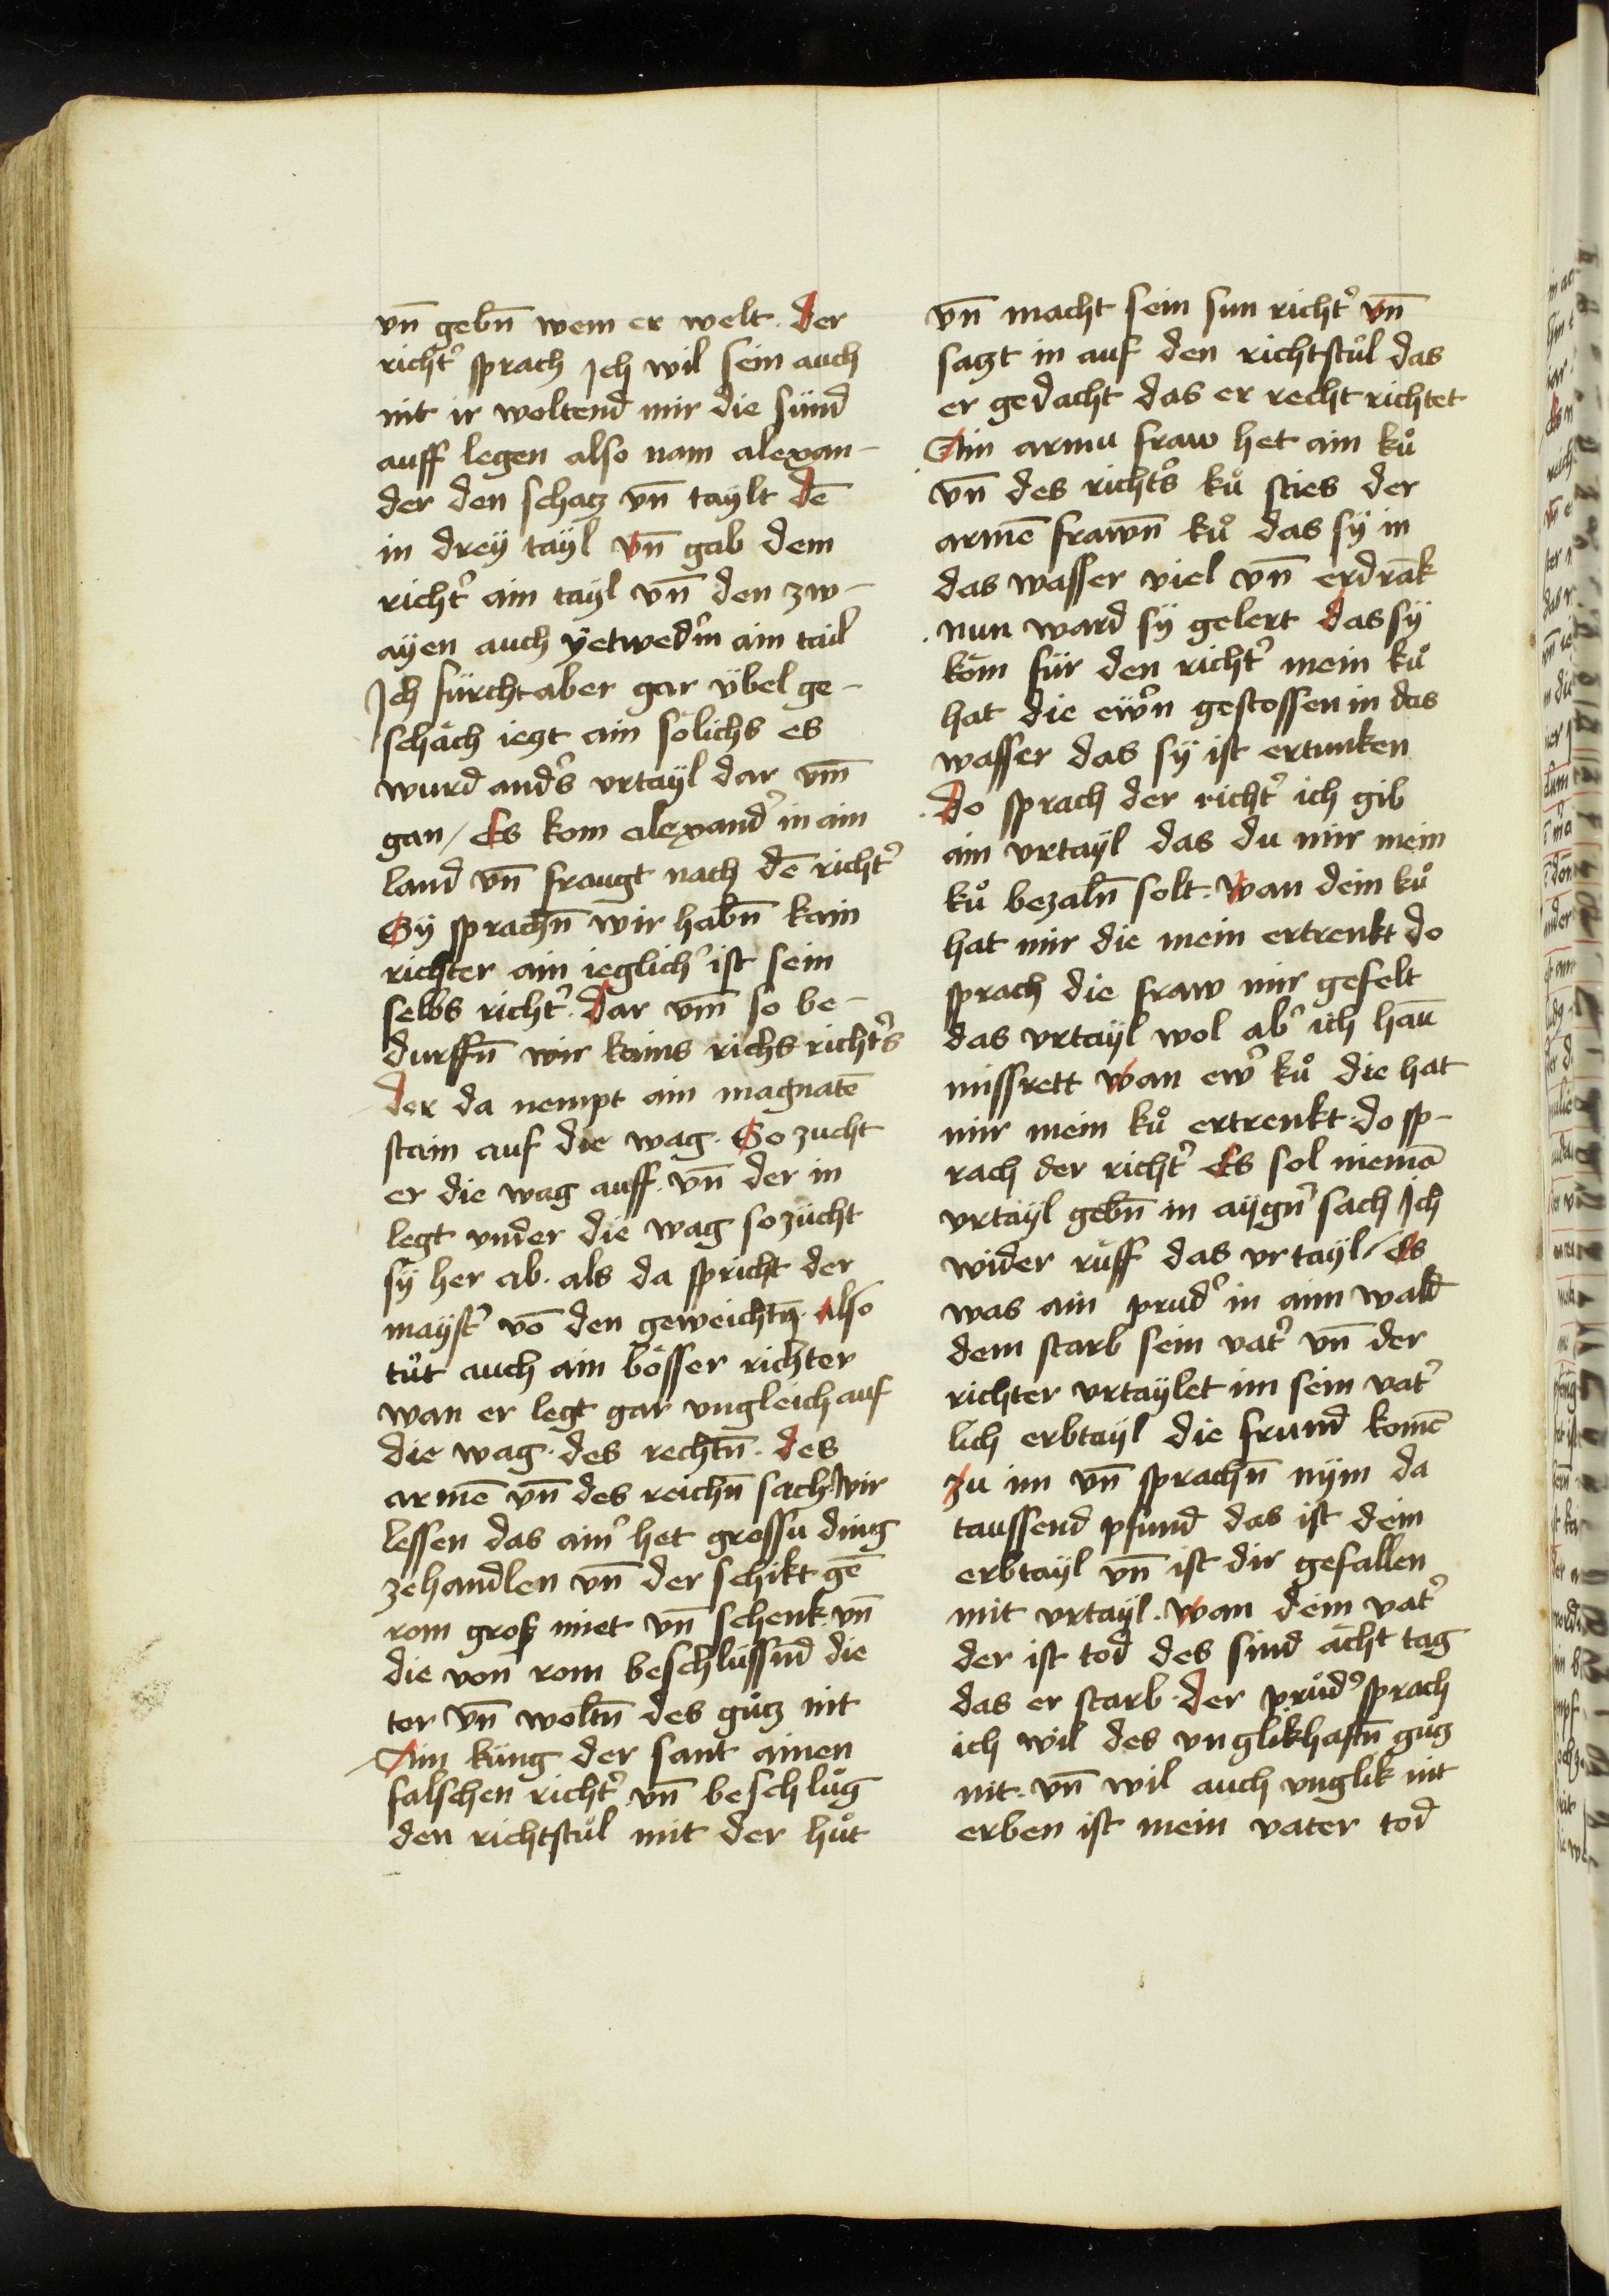 vn̄ gebn̄ wem er welt. der
richt͛ sprach Ich wil sein auch
nit ir woltend mir die sünd
auff legen also nam alexan-
der den schatz vn̄ taylt dē
in dreÿ taÿl vn̄ gab dem
richt͛ ain taÿl vn̄ den zw-
aÿen auch ÿetwed͛m ain tail
Ich fürcht aber gar v̈bel ge-
schäch ietzt ain sölichs es
wurd and͛s vrtaÿl dar vm̄
gan / Es kom alexand͛ in ain
land vn̄ fraugt nach dē richt͛
Sÿ sprachn̄ wir habn̄ kain
richter ain ieglich͛ ist sein
selbs richt͛. dar vm̄ so be-
durffn̄ wir kains richs richt͛s
der da nempt ain magnatē
stain auf die wag. So zucht
er die wag auff. vn̄ der in
legt vnder die wag so zücht
sÿ her ab. als da spricht der
maÿst͛ vō den geweichtn̄. also
tůt auch ain böser richter
wan er legt gar vngleich auf
die wag. des rechtn̄. des
armē vn̄ des reichn̄ sach. wir
lessen das ain͛ het grossu ding
ze handlen vn̄ der schikt gē
rom groß miet vn̄ schenk. vn̄
die von rom beschlüssnd die
tor vn̄ woltn̄ des gůtz nit
Ain küng der fant ainen
falschen richt͛ vn̄ beschlůg
den richtstůl mit der hůt
vn̄ macht sein sun richt͛ vn̄
satzt in auf den richtstůl das
er gedacht das er recht richtet
Ain armu fraw het ain ků
vn̄ des richt͛s ků sties der
armē frawn̄ ků das sÿ in
das wasser viel vn̄ erdrāk
nun ward sÿ gelert das sÿ
köm für den richt͛ mein ků
hat die ew͛n gestossen in das
wasser das sÿ ist ertunken
do sprach der richt͛ ich gib
ain vrtaÿl das du mir mein
ků bezaln̄ solt. wan dein ků
hat mir die mein ertrenkt do
sprach die fraw mir gefelt
das vrtaÿl wol ab͛ ich hau̅
missrett wan ew͛ ků die hat
mir mein ků ertrenkt. do sp-
rach der richt͛ Es sol niemā
vrtaÿl gebn̄ in aÿgn͛ sach Ich
wider růff das vrtaÿl / Es
was ain prud͛ in aim wald
dem starb sein vat͛ vn̄ der
richter vrtaÿlet im sein vat͛
lich erbtaÿl die frund komē
zu im vn̄ sprachn̄ nÿm da
taussend pfund das ist dein
erbtaÿl vn̄ ist dir gefallen
mit vrtaÿl. wan dein vat͛
der ist tod des sind ächt tag
das er starb. der průd͛ sprach
ich wil des vnglikhaftn̄ gůtz
nit. vn̄ wil auch vnglik nit
erben ist mein vater tod